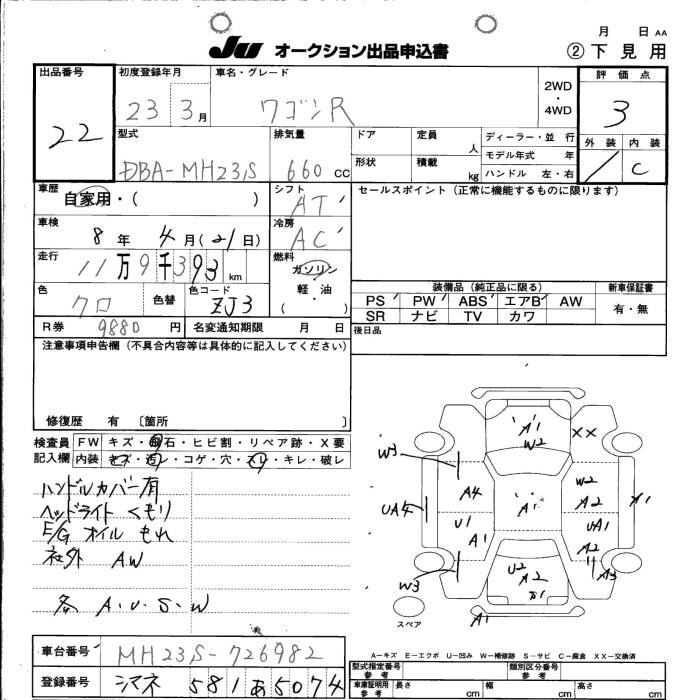 月 日 AA
JU オークション出品申込書 ② 下 見 用
出品番号 初度登録年月 車名・グレード 評 価 点
22 23 3月 ワゴンR 2WD・4WD 3
型式 排気量 ドア 定員 人 ディーラー・並 行 外 装 内 装
DBA-MH23S 660 CC 形状 積載 kg モデル年式 年 C
ハンドル 左・右
車歴 自家用・( ) シフト AT セールスポイント（正常に機能するものに限ります）
車検 8年 4月(21日) 冷房 AC
走行 11万9千393 km 燃料 ガソリン 軽・油 ( )
色 クロ 色替 色コード ZJ3
装備品（純正品に限る） 新車保証書
PS PW ABS エアB AW 有・無
SR ナビ TV カワ
R券 9880 円 名変通知期限 月 日 後日品
注意事項申告欄（不具合内容等は具体的に記入してください）
修復歴 有 〔箇所 〕
検査員 FW キズ・飛石・ヒビ割・リペア跡・X要
記入欄 内装 キズ・汚レ・コゲ・穴・スレ・キレ・破レ
ハンドルカバー有
ヘッドライトくもり
E/G オイル もれ
社外 AW
各 A・U・S・W
A1
W2
XX
W3
A4
W2
A2
A1
UA4
A1
U1
A1
UA1
A2
A3
U2
A2
S1
W3
A1
スペア
A-キズ E-エクボ U-凹み W-補修跡 S-サビ C-腐食 XX-交換済
車台番号 MH23S-726982
登録番号 シマネ 581 あ 5074
型式指定番号 参考 類別区分番号 参考
車庫証明用 参考 長さ cm 幅 cm 高さ cm